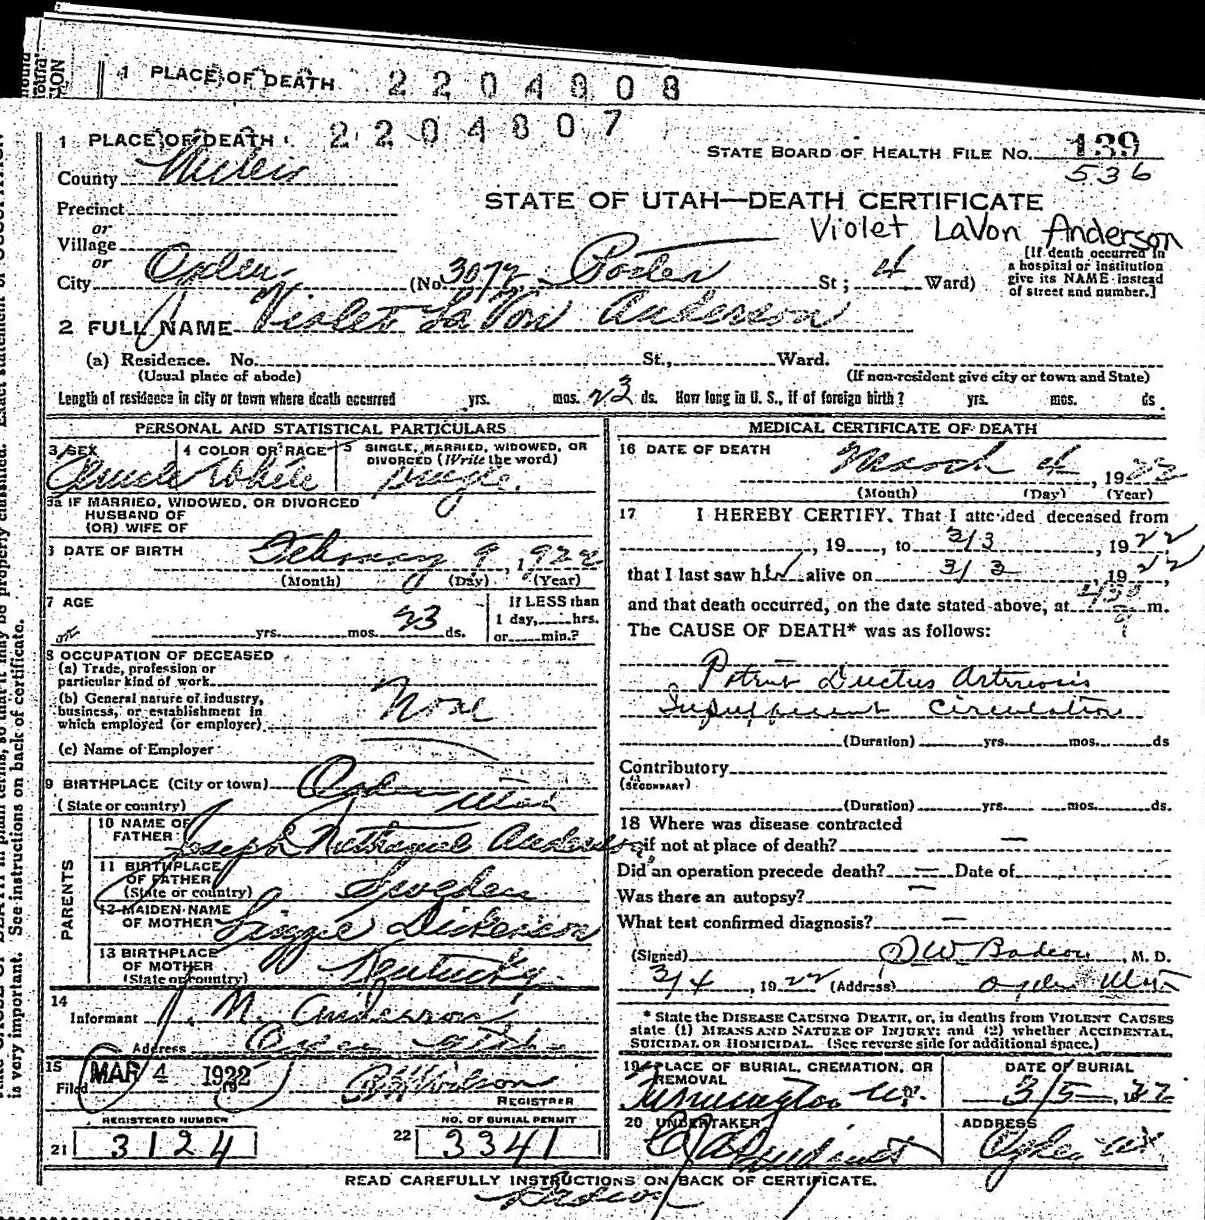 1 PLACE OF DEATH 2204808
1 PLACE OF DEATH 2204807
STATE BOARD OF HEALTH FILE No. 139
536
County
Precinct
or
Village
or
STATE OF UTAH—DEATH CERTIFICATE
Violet LaVon Anderson
City Ogden (No. 3072 Porter St; 4 Ward)
[If death occurred in
a hospital or institution
give its NAME instead
of street and number.]
2 FULL NAME Violet La Von Anderson
(a) Residence. No. St., Ward.
(Usual place of abode) (If non-resident give city or town and State)
Length of residence in city or town where death occurred yrs. mos. 23 ds. How long in U. S., if of foreign birth? yrs. mos. ds.
PERSONAL AND STATISTICAL PARTICULARS
3 SEX 4 COLOR OR RACE 5 SINGLE, MARRIED, WIDOWED, OR
DIVORCED (Write the word)
Female White Single.
5a IF MARRIED, WIDOWED, OR DIVORCED
HUSBAND OF
(OR) WIFE OF
6 DATE OF BIRTH February 9, 1922
(Month) (Day) (Year)
7 AGE
If LESS than
yrs. mos. 23 ds. 1 day, hrs.
or min.?
8 OCCUPATION OF DECEASED
(a) Trade, profession or
particular kind of work
(b) General nature of industry,
business, or establishment in
which employed (or employer) None
(c) Name of Employer
9 BIRTHPLACE (City or town) Ogden
(State or country) Utah
PARENTS
10 NAME OF
FATHER Joseph Nathaniel Anderson
11 BIRTHPLACE
OF FATHER
(State or country) Sweden
12 MAIDEN NAME
OF MOTHER Lizzie Dickerson
13 BIRTHPLACE
OF MOTHER
(State or country) Kentucky
14
Informant J. N. Anderson
Address Ogden Utah
15
Filed MAR 4 1922 Wilson
REGISTRER
REGISTERED NUMBER NO. OF BURIAL PERMIT
21 3124 22 3341
MEDICAL CERTIFICATE OF DEATH
16 DATE OF DEATH March 4, 1922
(Month) (Day) (Year)
17 I HEREBY CERTIFY, That I attended deceased from
, 19 , to 3/3, 1922
that I last saw her alive on 3/3, 1922,
and that death occurred, on the date stated above, at m.
The CAUSE OF DEATH* was as follows:
Patent Ductus Arteriosis
Insufficient Circulation
(Duration) yrs. mos. ds
Contributory
(SECONDARY)
(Duration) yrs. mos. ds.
18 Where was disease contracted
if not at place of death? —
Did an operation precede death? — Date of
Was there an autopsy? —
What test confirmed diagnosis? —
(Signed) , M. D.
3/4, 1922 (Address) Ogden Utah
* State the DISEASE CAUSING DEATH, or, in deaths from VIOLENT CAUSES
state (1) MEANS AND NATURE OF INJURY; and (2) whether ACCIDENTAL,
SUICIDAL OR HOMICIDAL. (See reverse side for additional space.)
19 PLACE OF BURIAL, CREMATION, OR
REMOVAL
DATE OF BURIAL
Farmington Ut. 3/5, 1922
20 UNDERTAKER ADDRESS
Ogden Ut
READ CAREFULLY INSTRUCTIONS ON BACK OF CERTIFICATE.
is very important. See instructions on back of certificate.